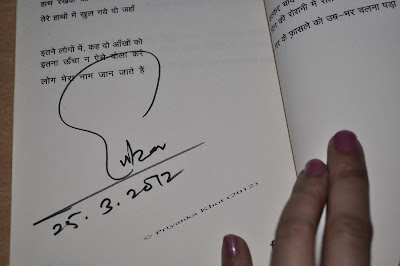 हाथ रखकर
तेरे हाथों में खुल गये दो जहाँ
इतने लोगों में, कह दो आँखों को
इतना ऊँचा न ऐसे बोला करें
लोग मेरा नाम जान जाते हैं
25.3.2012
© Priyanka Khot (2012)
की रोशनी में
के फ़ासले को उम्र-भर चलना पड़ा